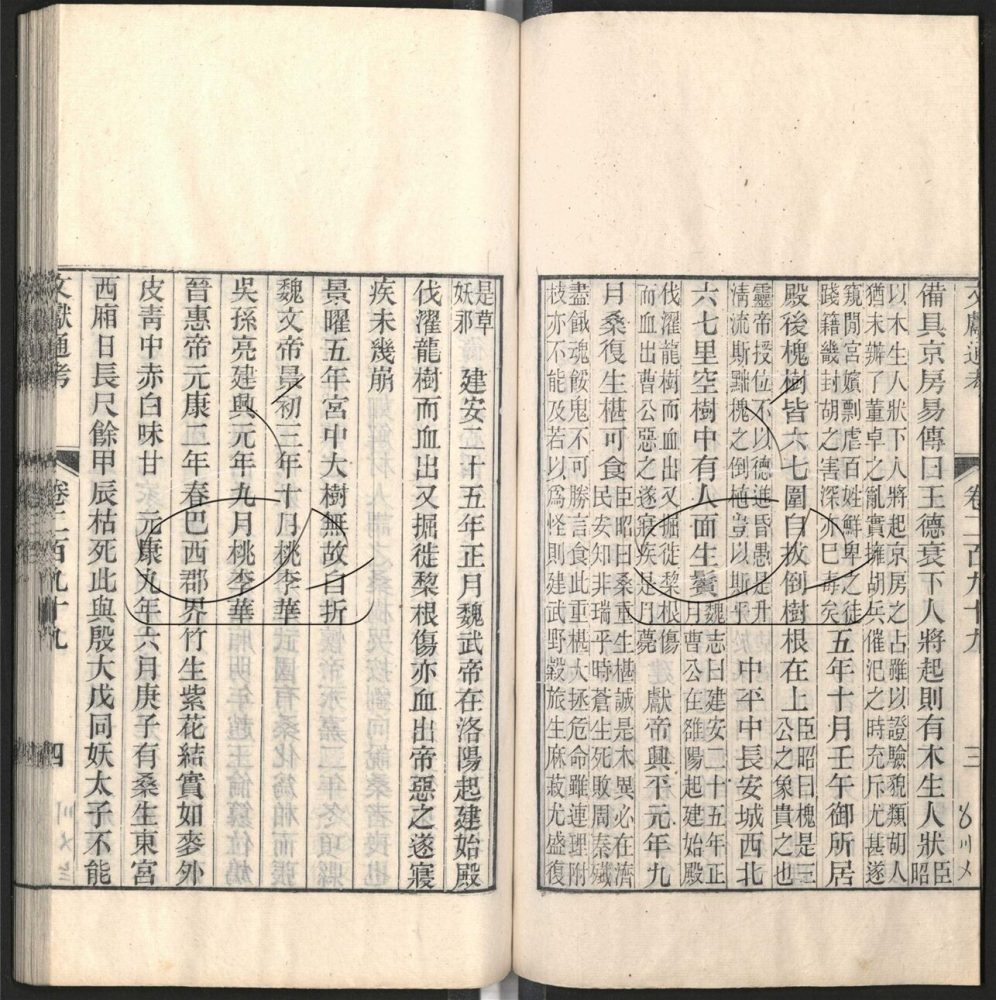 文獻通考 卷二百九十九 三
備具京房易傳曰王德衰下人將起則有木生人狀臣昭
以木生人狀下人將起京房之占雖以證驗貌類胡人
猶未辦了董卓之亂實擁胡兵傕汜之時充斥尤甚遂
窺閒宮嬪剽虐百姓鮮卑之徒
踐籍畿封胡之害深亦已毒矣
五年十月壬午御所居
殿後槐樹皆六七圍自拔倒樹根在上臣昭曰槐是三
公之象貴之也
靈帝授位不以德進昏愚是升
清流斯黜槐之倒植豈以斯乎
中平中長安城西北
六七里空樹中有人面生鬢魏志曰建安二十五年正
月曹公在雒陽起建始殿
伐濯龍樹而血出又掘徙棃根傷
而血出曹公惡之遂寢疾是月薨
獻帝興平元年九
月桑復生椹可食臣昭曰桑重生椹誠是木異必在濟
民安知非瑞乎時蒼生死敗周秦殲
盡餓魂餒鬼不可勝言食此重椹大拯危命雖連理附
枝亦不能及若以爲怪則建武野穀旅生麻菽尤盛復
是草
妖邪
建安二十五年正月魏武帝在洛陽起建始殿
伐濯龍樹而血出又掘徙棃根傷亦血出帝惡之遂寢
疾未幾崩
景曜五年宮中大樹無故自折
魏文帝景初三年十月桃李華
吳孫亮建興元年九月桃李華
晉惠帝元康二年春巴西郡界竹生紫花結實如麥外
皮青中赤白味甘 元康九年六月庚子有桑生東宮
西廂日長尺餘甲辰枯死此與殷大戊同妖太子不能
文獻通考 卷二百九十九 四